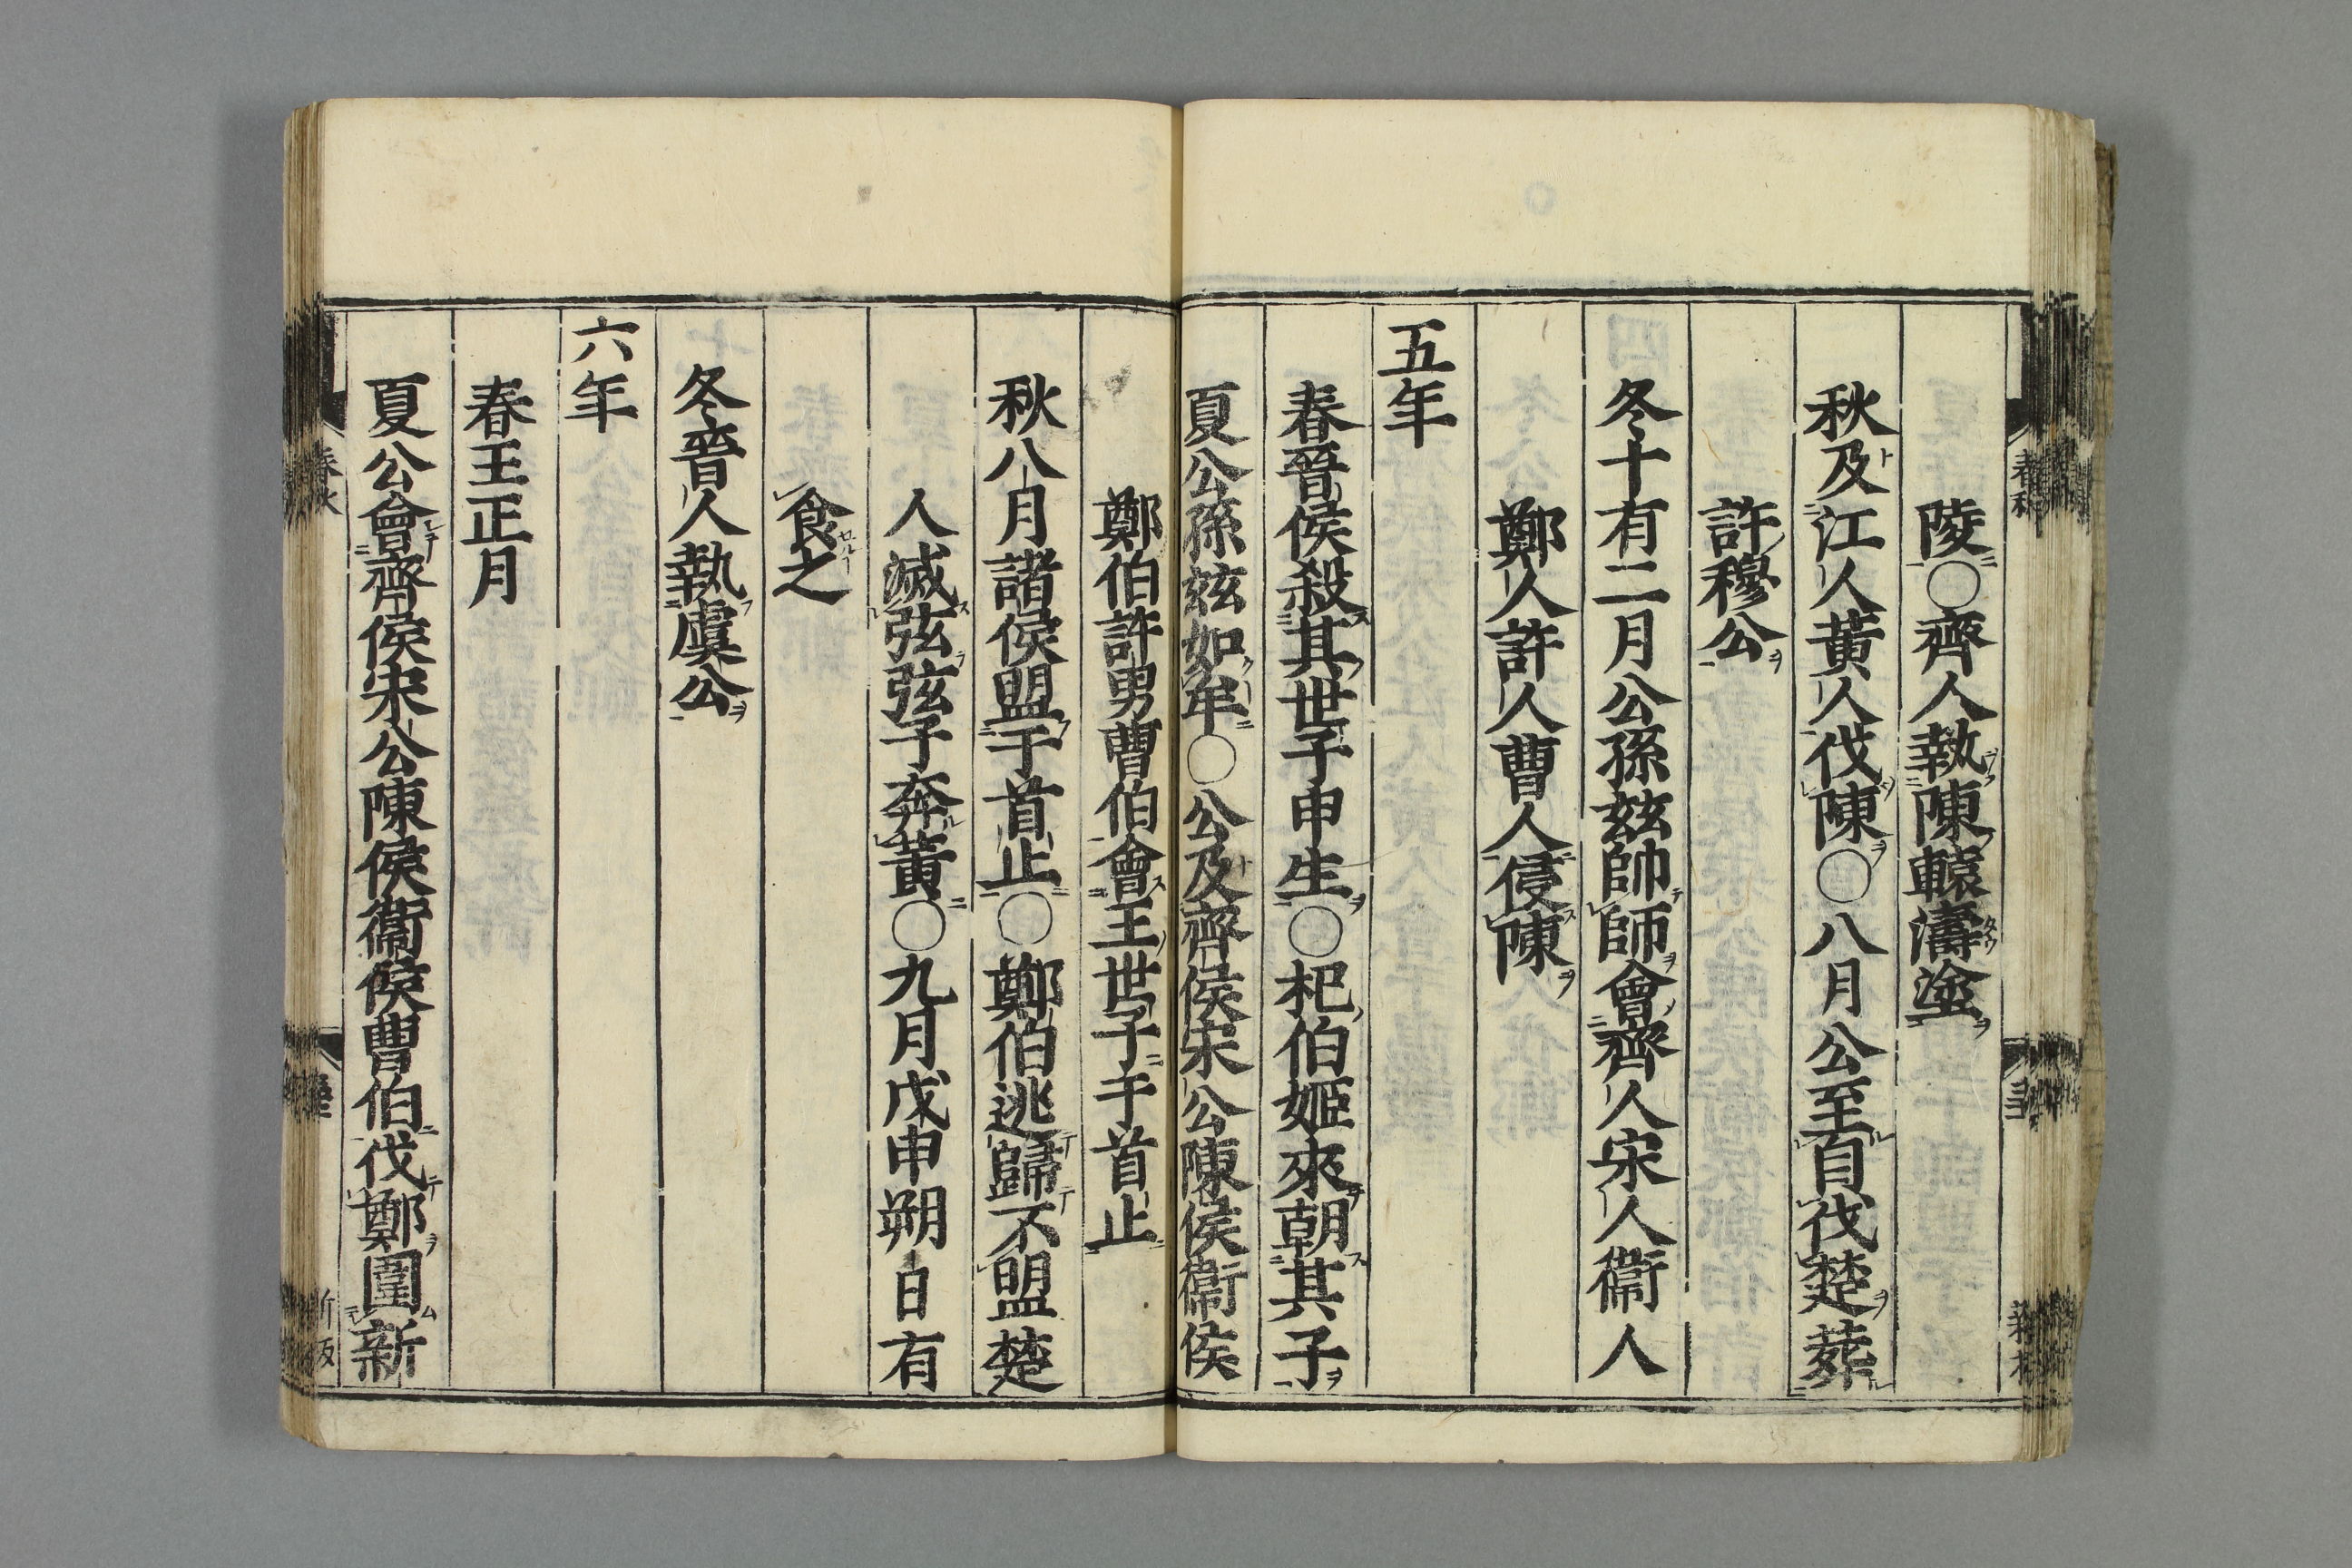 陵○齊人執陳轅濤塗
秋及江人黃人伐陳○八月公至自伐楚葬
許穆公
冬十有二月公孫玆帥師會齊人宋人衞人
鄭人許人曹人侵陳
五年
春晉侯殺其世子申生○杞伯姬來朝其子
夏公孫玆如牟○公及齊侯宋公陳侯衞侯
鄭伯許男曹伯會王世子于首止
秋八月諸侯盟于首止○鄭伯逃歸不盟楚
人滅弦弦子奔黃○九月戊申朔日有
食之
冬晉人執虞公
六年
春王正月
夏公會齊侯宋公陳侯衞侯曹伯伐鄭圍新
春秋
新板